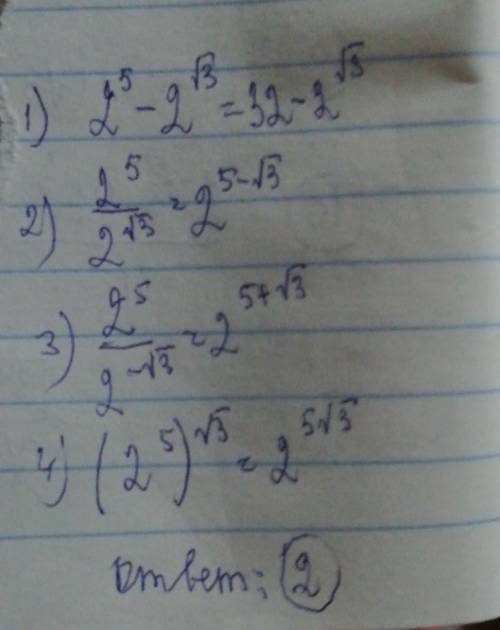 1) 2⁵ - 2^√3 = 32 - 2^√3
2) 2⁵/2^√3 = 2^(5-√3)
3) 2⁵/2^(-√3) = 2^(5+√3)
4) (2⁵)^√3 = 2^(5√3)
Ответ: 2